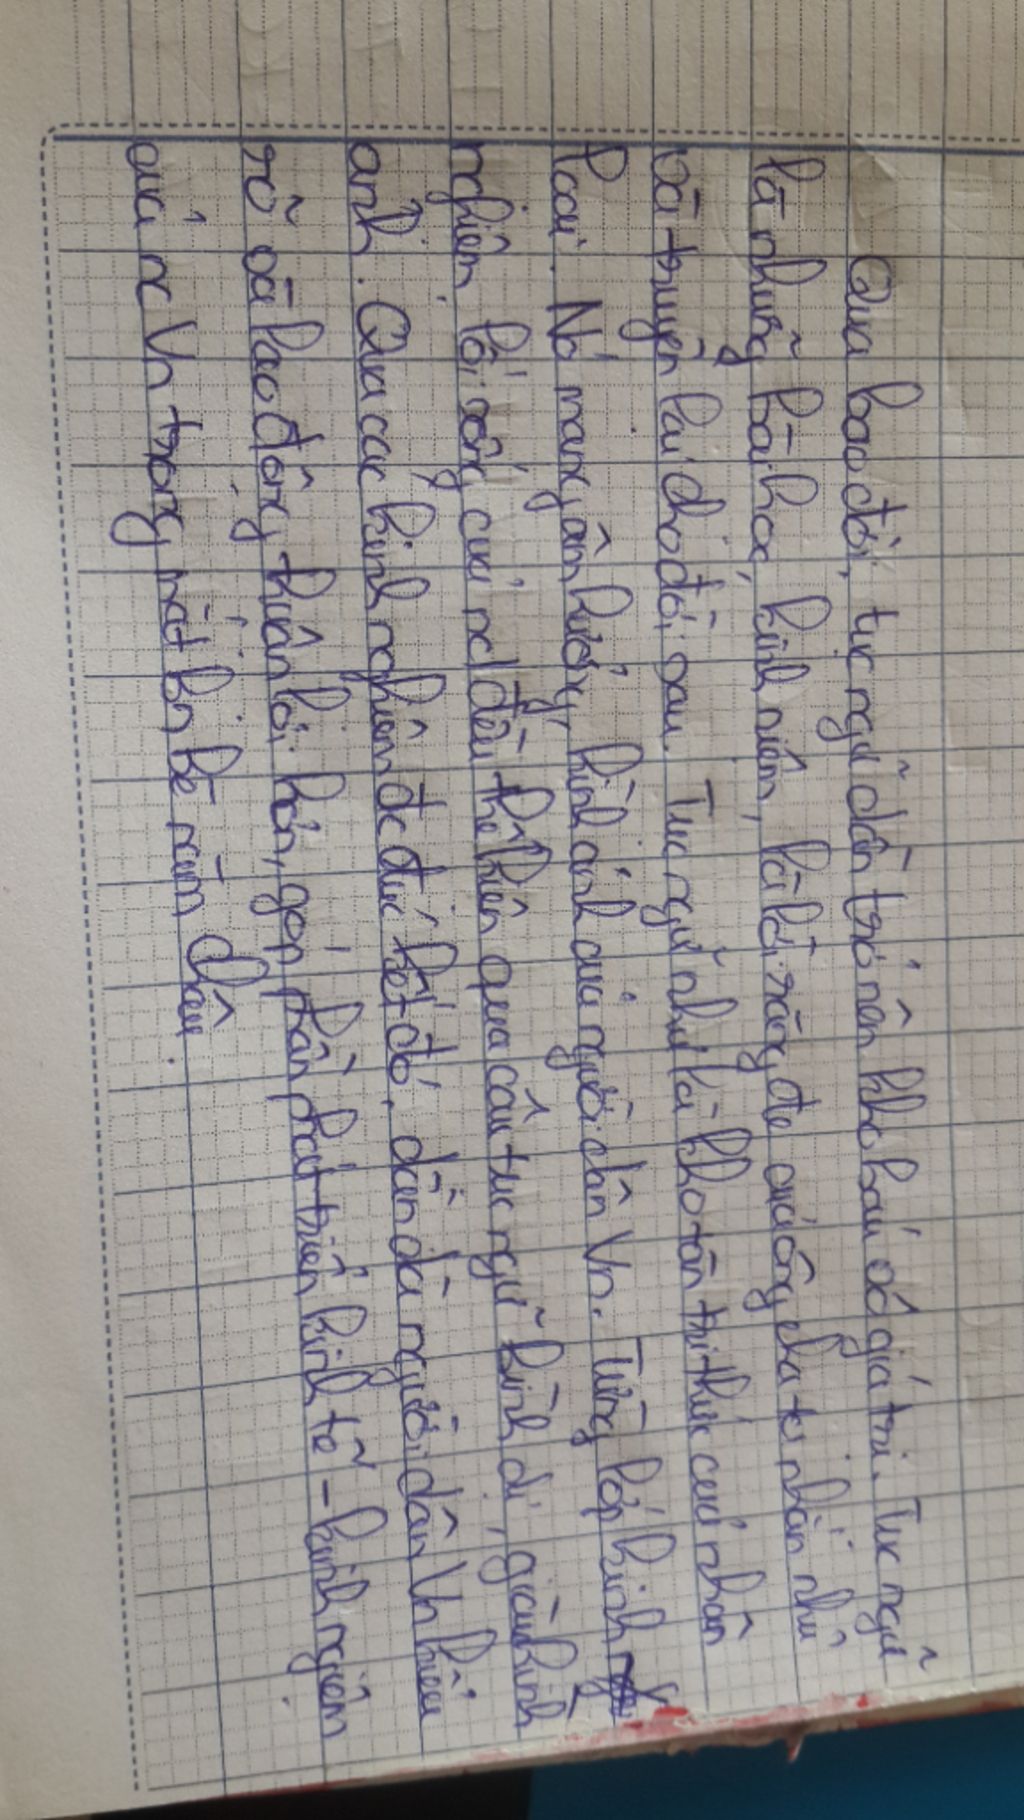 Qua bao đời, tục ngữ dần trở nên kho báu vô giá trị. Tục ngữ
là những bài học, kinh niêm, là lời răng đe của ông cha ta nhắn nhủ
và truyền lại cho đời sau. Tục ngữ như là kho tàn tri thức của nhân
loại. Nó mang ân hưởng, hình ảnh của người dân Vn. Từng lớp kinh
nghiêm, lối sống của nd đều thể hiện qua câu tục ngữ bình dị, giàu hình
ảnh. Qua các kinh nghiêm đc đúc kết đó, dần dà người dân Vn hiểu
rõ và lao động thuận lợi hơn, góp phần phát triển kinh tế - kinh ngiêm
của nc Vn trong mắt bn bè năm châu.